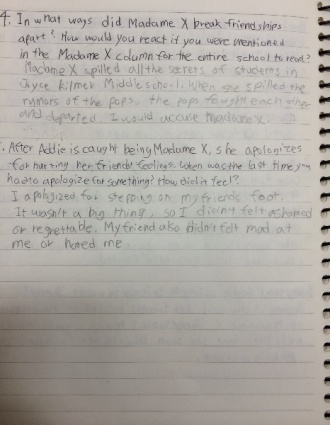 4. In what ways did Madame X break friendships
apart? How would you react if you were mentioned
in the Madame X column for the entire school to read?
Madame X spilled all the secrets of students in
Joyce Kilmer Middle school. When she spilled the
rumors of the pops, the pops fought each other
and departed. I would accuse Madame X.
. After Addie is caught being Madame X, she apologizes
for hurting her friends' feelings. When was the last time you
had to apologize for something? How did it feel?
I apologized for stepping on my friends foot.
It wasn't a big thing, so I didn't felt ashamed
or regrettable. My friend also didn't felt mad at
me or hated me.